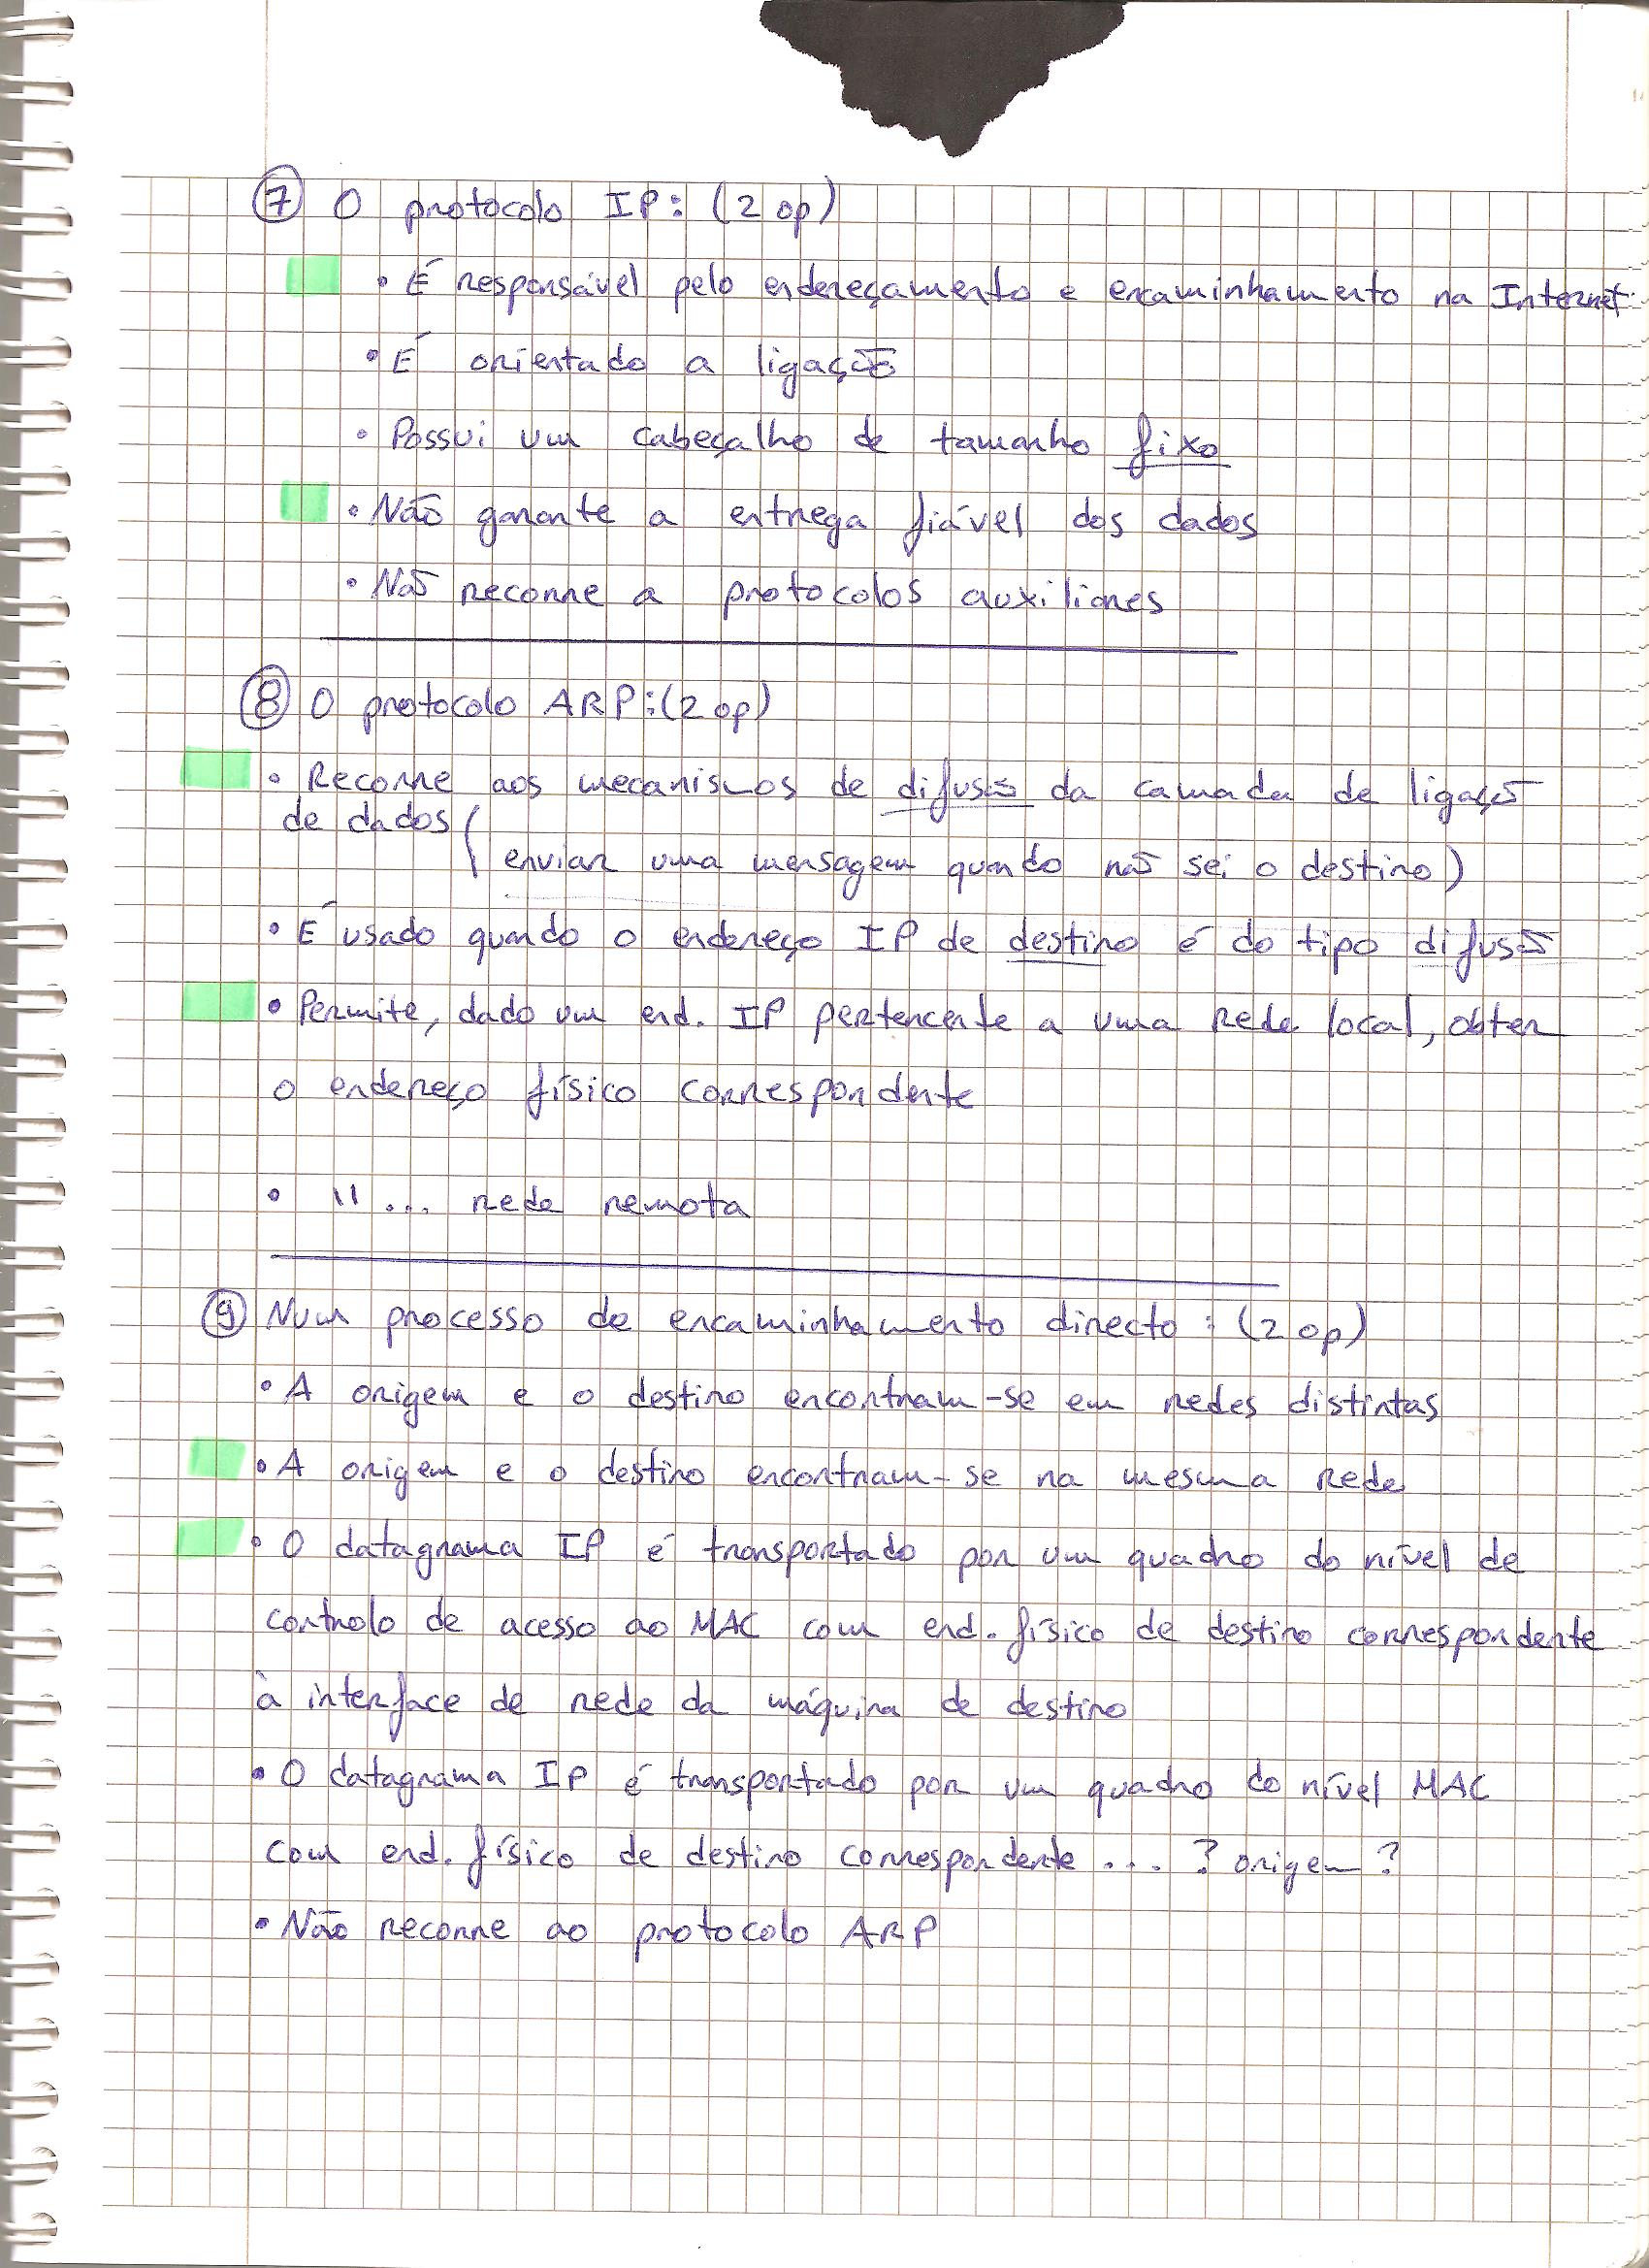 ⑦ O protocolo IP: (2 op)
• É responsável pelo endereçamento e encaminhamento na Internet
• É orientado a ligação
• Possui um cabeçalho de tamanho fixo
• Não garante a entrega fiável dos dados
• Não recorre a protocolos auxiliares
⑧ O protocolo ARP: (2 op)
• Recorre aos mecanismos de difusão da camada de ligação
de dados
(enviar uma mensagem quando não sei o destino)
• É usado quando o endereço IP de destino é do tipo difusão
• Permite, dado um end. IP pertencente a uma rede local, obter
o endereço físico correspondente
• " ... rede remota
⑨ Num processo de encaminhamento directo: (2 op)
• A origem e o destino encontram-se em redes distintas
• A origem e o destino encontram-se na mesma rede
• O datagrama IP é transportado por um quadro do nível de
controlo de acesso ao MAC com end. físico de destino correspondente
à interface de rede da máquina de destino
• O datagrama IP é transportado por um quadro do nível MAC
com end. físico de destino correspondente ... ? origem?
• Não recorre ao protocolo ARP